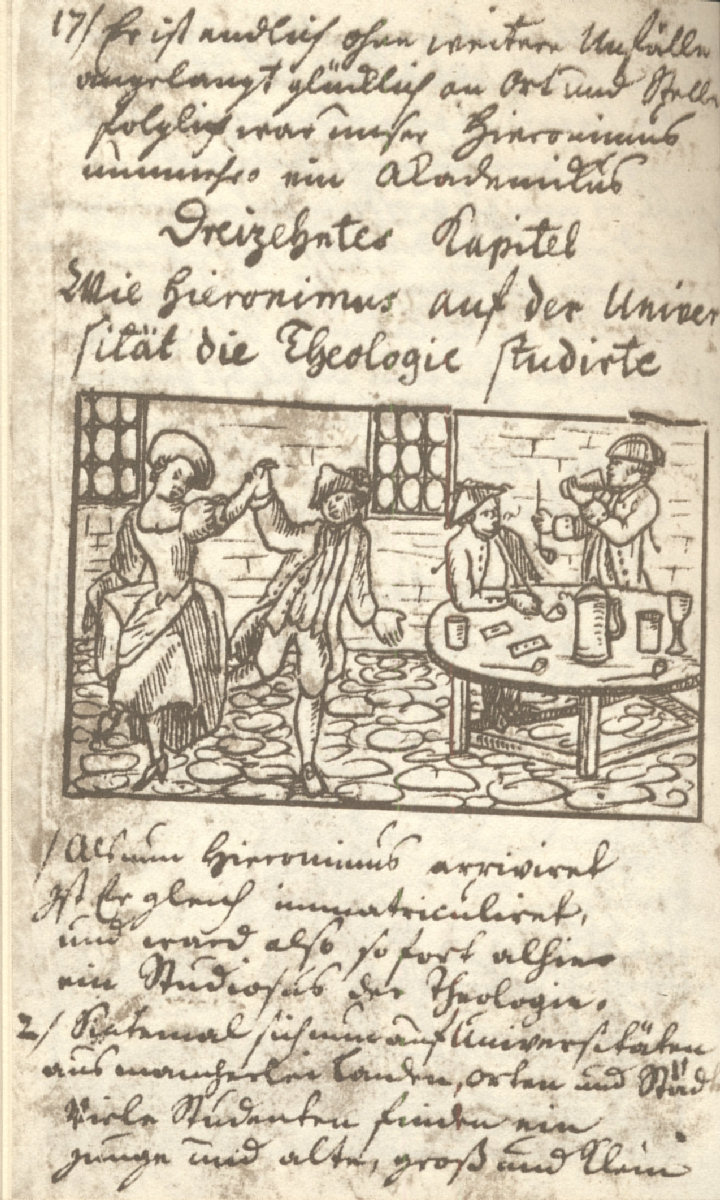 17/ Er ist endlich ohne weitere Unfälle
angelangt glücklich an Ort und Stelle
folglich war unser Hieronimus
nunmehro ein Akademikus
Dreizehntes Kapitel
Wie Hieronimus auf der Univer
sität die Theologie studirte
1/ Als nun Hieronimus arriviret
Ist Er gleich immatriculiret,
und ward also sofort alhier
ein Studiosus der Theologie.
2/ Sintemal sich nun auf Universitäten
aus mancherlei Landen, Orten und Städt
Viele Studenten finden ein
junge und alte, groß und klein